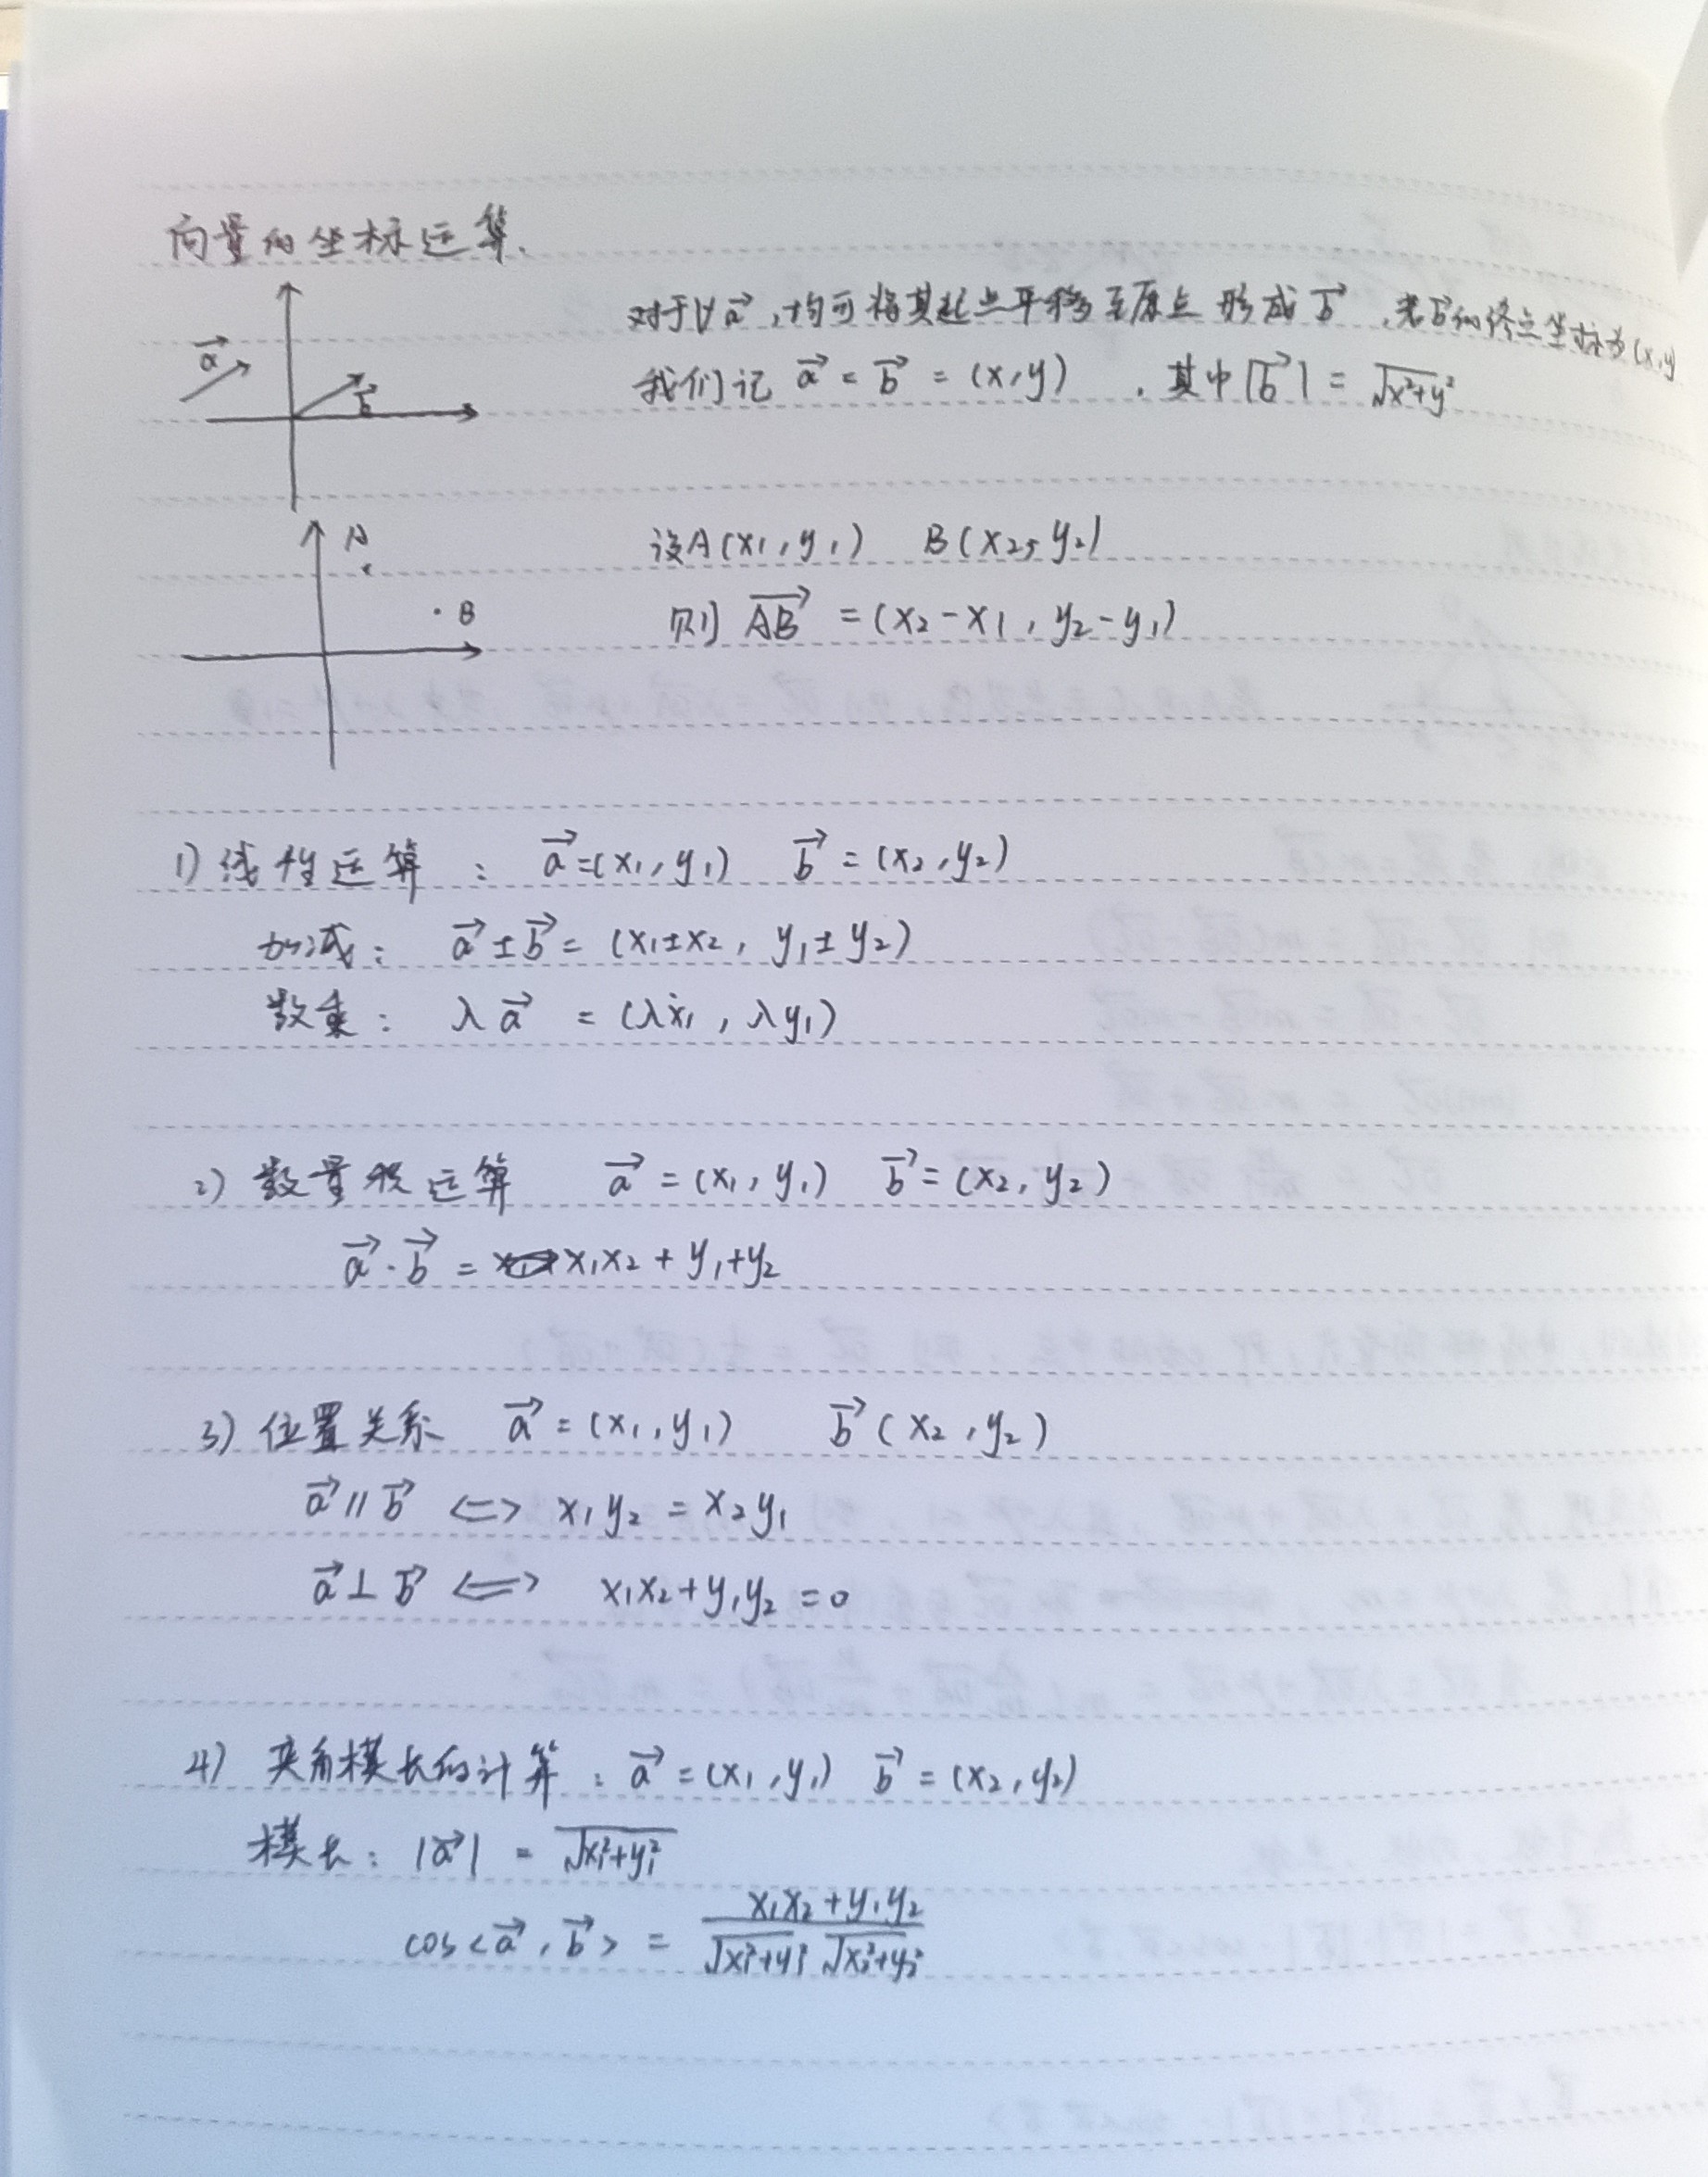 向量的坐标运算.
对于∀a⃗,均可将其起点平移至原点 形成b⃗,若b⃗的终点坐标为(x,y)
我们记 a⃗ = b⃗ = (x,y) ,其中|b⃗| = √(x²+y²)
a⃗
b⃗
A
B
设A(x₁,y₁) B(x₂,y₂)
则 AB⃗ = (x₂-x₁, y₂-y₁)
1) 线性运算: a⃗=(x₁,y₁) b⃗=(x₂,y₂)
加减: a⃗±b⃗ = (x₁±x₂, y₁±y₂)
数乘: λa⃗ = (λx₁, λy₁)
2) 数量积运算 a⃗=(x₁,y₁) b⃗=(x₂,y₂)
a⃗·b⃗ = x₁x₂ + y₁+y₂
3) 位置关系 a⃗=(x₁,y₁) b⃗(x₂,y₂)
a⃗∥b⃗ <=> x₁y₂ = x₂y₁
a⃗⊥b⃗ <=> x₁x₂+y₁y₂=0
4) 夹角模长的计算: a⃗=(x₁,y₁) b⃗=(x₂,y₂)
模长: |a⃗| = √(x₁²+y₁²)
cos<a⃗,b⃗> = (x₁x₂+y₁y₂)/(√(x₁²+y₁²) √(x₂²+y₂²))